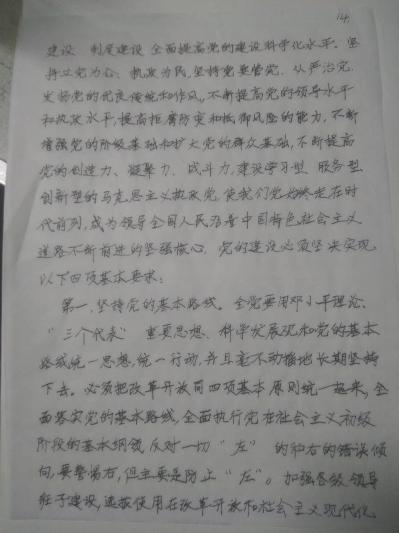 建设 制度建设 全面提高党的建设科学化水平。坚
持立党为公、执政为民,坚持党要管党、从严治党,
发扬党的优良传统和作风,不断提高党的领导水平
和执政水平,提高拒腐防变和抵御风险的能力,不断
增强党的阶级基础和扩大党的群众基础,不断提高
党的创造力、凝聚力、战斗力,建设学习型、服务型、
创新型的马克思主义执政党,使我们党始终走在时
代前列,成为领导全国人民沿着中国特色社会主义
道路不断前进的坚强核心。党的建设必须坚决实现
以下四项基本要求:
第一,坚持党的基本路线。全党要用邓小平理论、
“三个代表”重要思想、科学发展观和党的基本
路线统一思想,统一行动,并且毫不动摇地长期坚持
下去。必须把改革开放同四项基本原则统一起来,全
面落实党的基本路线,全面执行党在社会主义初级
阶段的基本纲领,反对一切“左”的和右的错误倾
向,要警惕右,但主要是防止“左”。加强各级领导
班子建设,选拔使用在改革开放和社会主义现代化